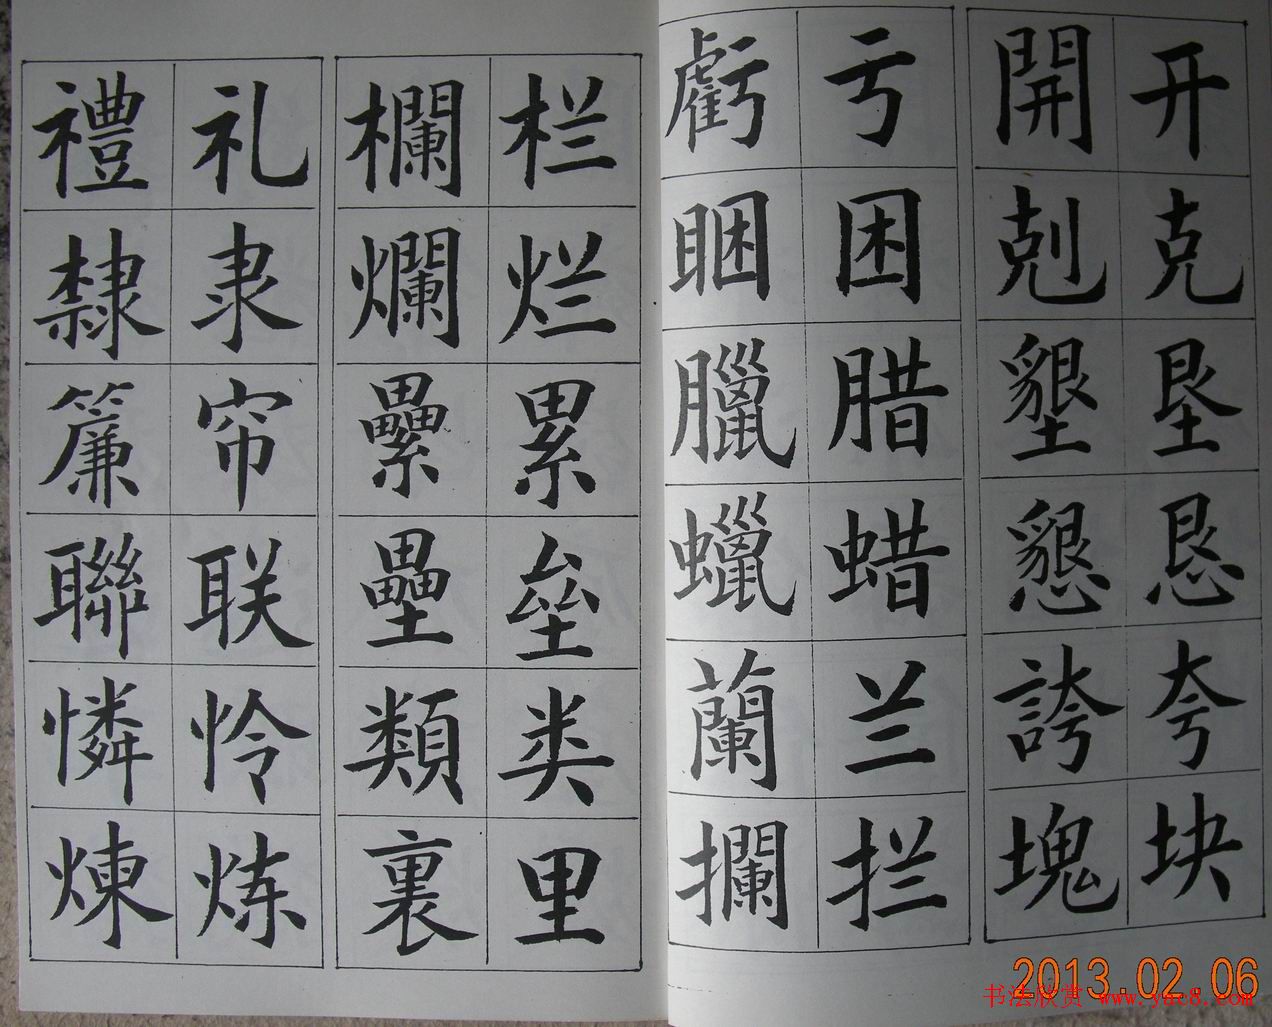 开克垦恳夸块
開剋墾懇誇塊
亏困腊蜡兰拦
虧睏臘蠟蘭攔
栏烂累垒类里
欄爛纍壘類裏
礼隶帘联怜炼
禮隸簾聯憐煉
2013.02.06
书法欣赏 www.yac8.com